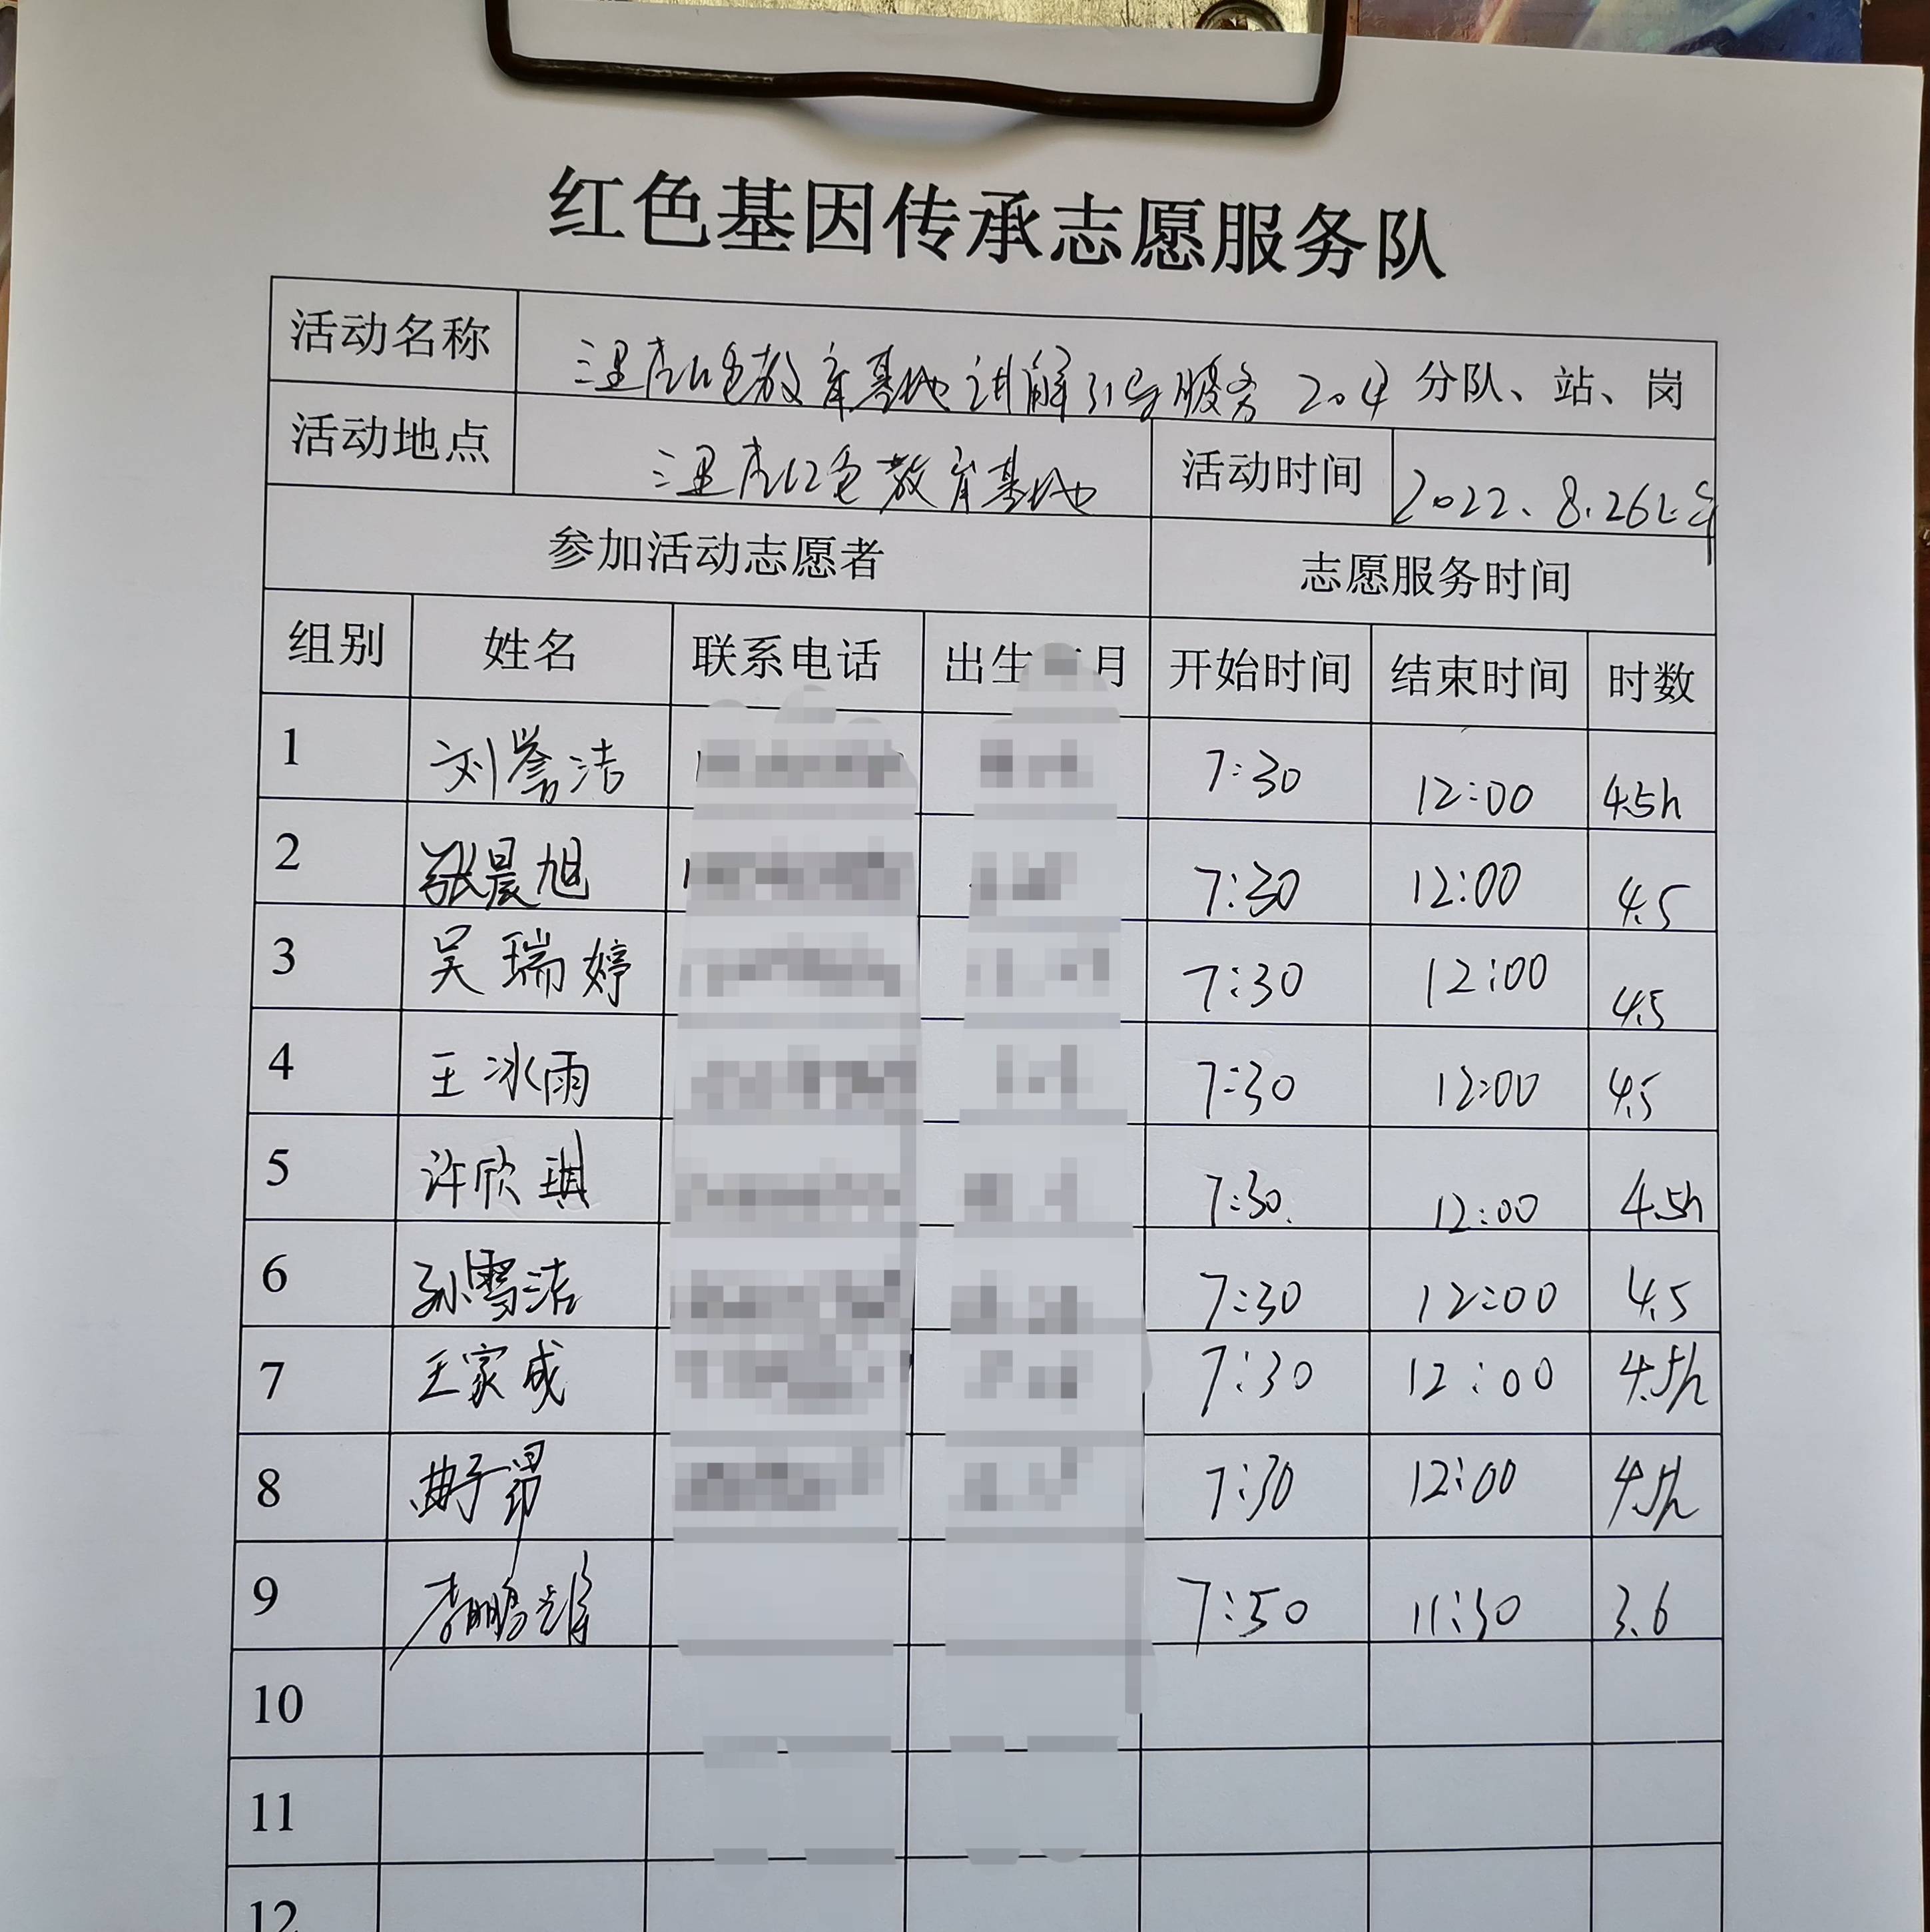 红色基因传承志愿服务队
活动名称 三里庄红色教育基地讲解引导服务 204 分队、站、岗
活动地点 三里庄红色教育基地 活动时间 2022.8.26上午
参加活动志愿者 志愿服务时间
组别 姓名 联系电话 出生 月 开始时间 结束时间 时数
1 刘誉洁 7:30 12:00 4.5h
2 张晨旭 7:30 12:00 4.5
3 吴瑞婷 7:30 12:00 4.5
4 王冰雨 7:30 12:00 4.5
5 许欣琪 7:30 12:00 4.5h
6 孙雪洁 7:30 12:00 4.5
7 王家成 7:30 12:00 4.5h
8 曲子昂 7:30 12:00 4.5h
9 李鹏 7:50 11:30 3.6
10
11
12